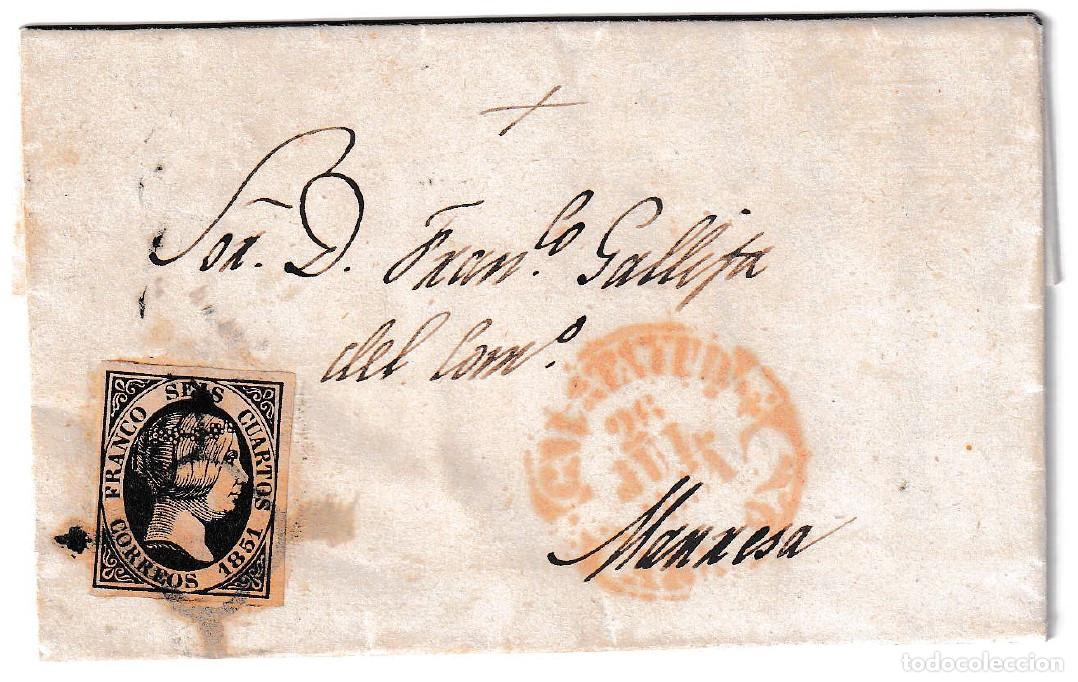 Sor. D. Franco. Gallifa
del Como.
Manresa
FRANCO SEIS CUARTOS
CORREOS 1851
26
JUL
todocoleccion